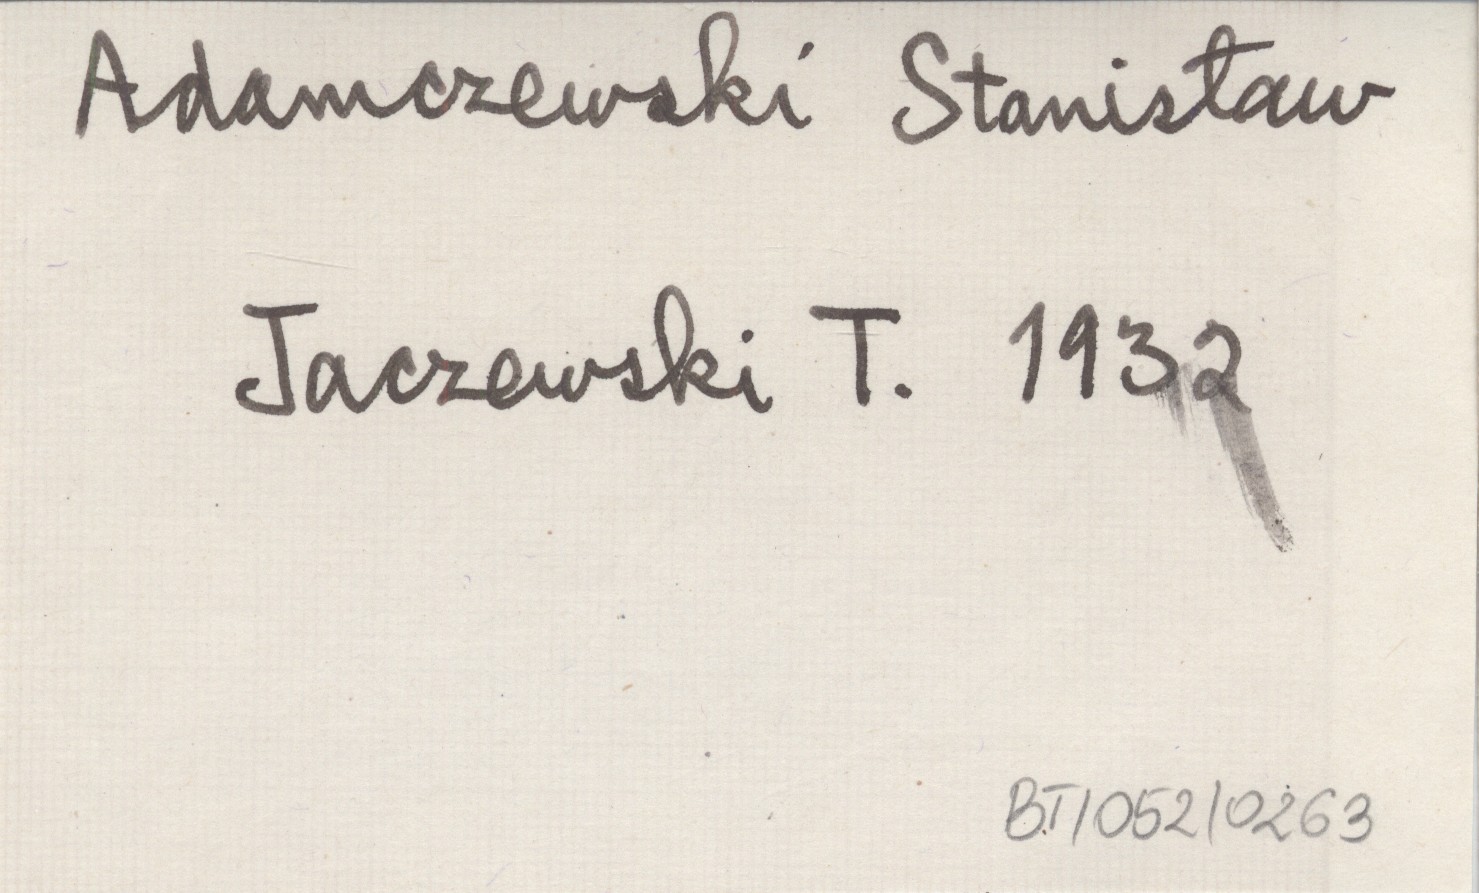 Adamczewski Stanisław
Jaczewski T. 1932
BT/052/0263